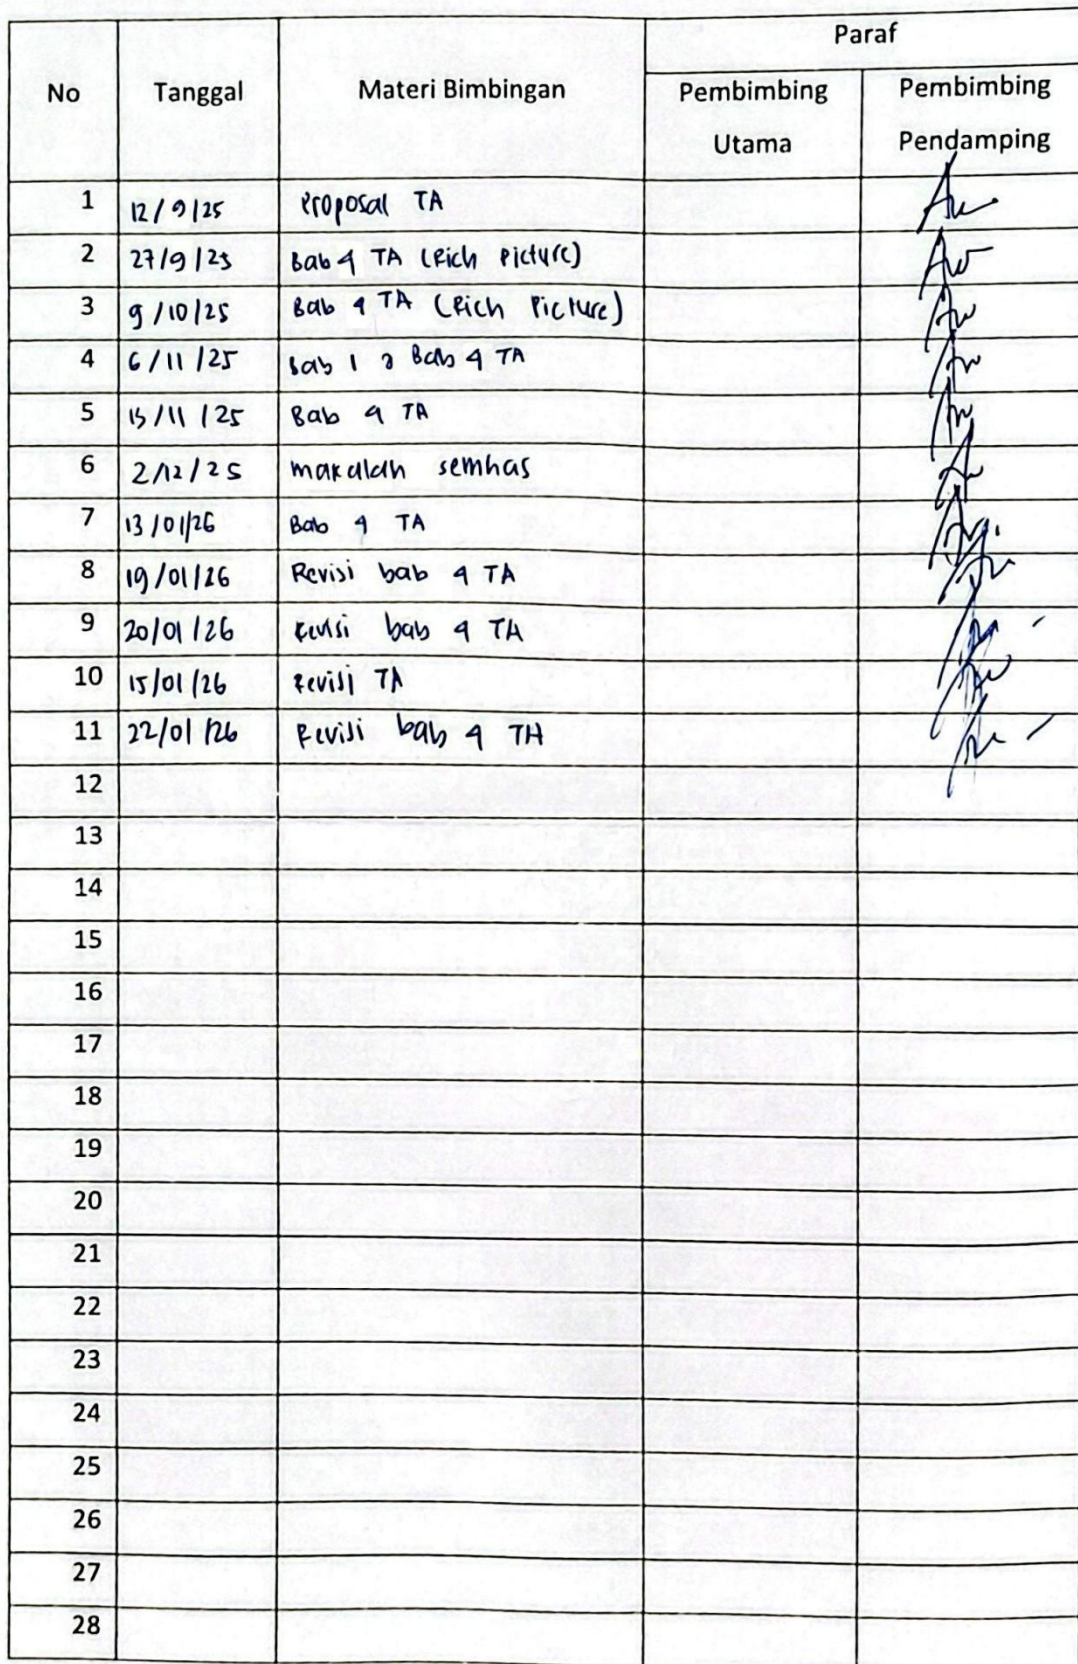 No Tanggal Materi Bimbingan Paraf
Pembimbing Utama Pembimbing Pendamping
1 12/9/25 Proposal TA
2 27/9/25 Bab 4 TA (Rich Picture)
3 9/10/25 Bab 4 TA (Rich Picture)
4 6/11/25 Bab 1 & Bab 4 TA
5 15/11/25 Bab 4 TA
6 2/12/25 makalah semhas
7 13/01/26 Bab 4 TA
8 19/01/26 Revisi bab 4 TA
9 20/01/26 Revisi bab 4 TA
10 15/01/26 Revisi TA
11 22/01/26 Revisi bab 4 TA
12
13
14
15
16
17
18
19
20
21
22
23
24
25
26
27
28